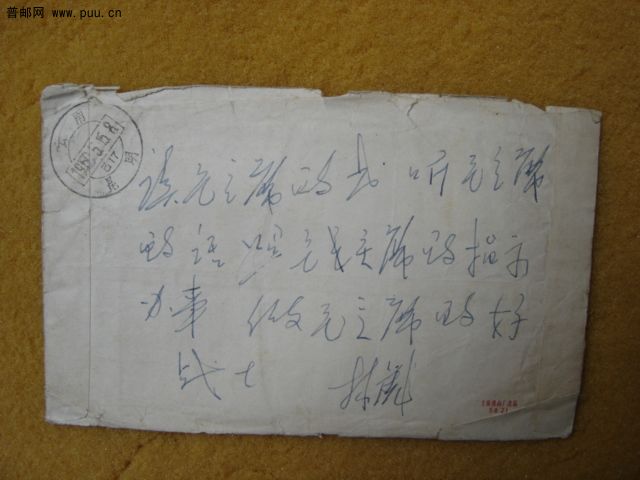 普邮网 www.puu.cn
云南
昆明
读毛主席的书 听毛主席
的话 照毛主席的指示
办事 做毛主席的好
战士 林彪